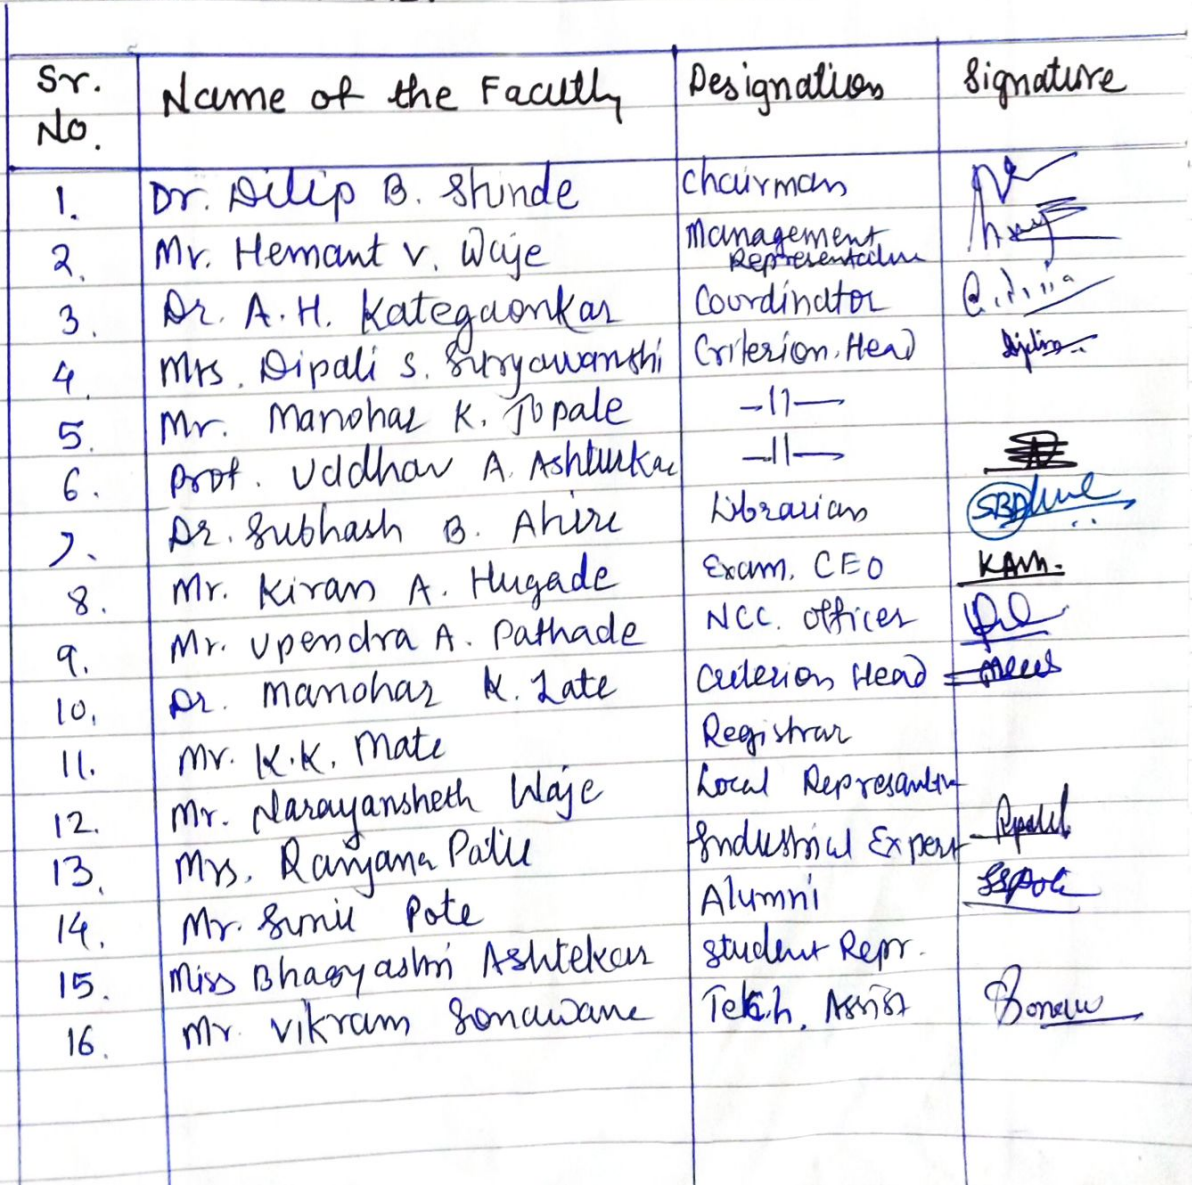 Sr. No. Name of the Faculty Designation Signature
1. Dr. Dilip B. Shinde Chairman
2. Mr. Hemant V. Waje Management Representative
3. Dr. A. H. Kategaonkar Coordinator
4. Mrs. Dipali S. Suryawanshi Criterion Head
5. Mr. Manohar K. Topale -11-
6. Prof. Uddhav A. Ashturkar -11-
7. Dr. Subhash B. Ahire Librarian
8. Mr. Kiran A. Hugade Exam. CEO
9. Mr. Upendra A. Pathade NCC. Officer
10. Dr. Manohar K. Zate Criterion Head
11. Mr. K.K. Mate Registrar
12. Mr. Narayansheth Waje Local
13. Mrs. Ranjana Patil Industrial Expert
14. Mr. Sunil Pote Alumni
15. Miss Bhagyashri Ashtekar Student Repr.
16. Mr. Vikram Sonawane Tech. Assist